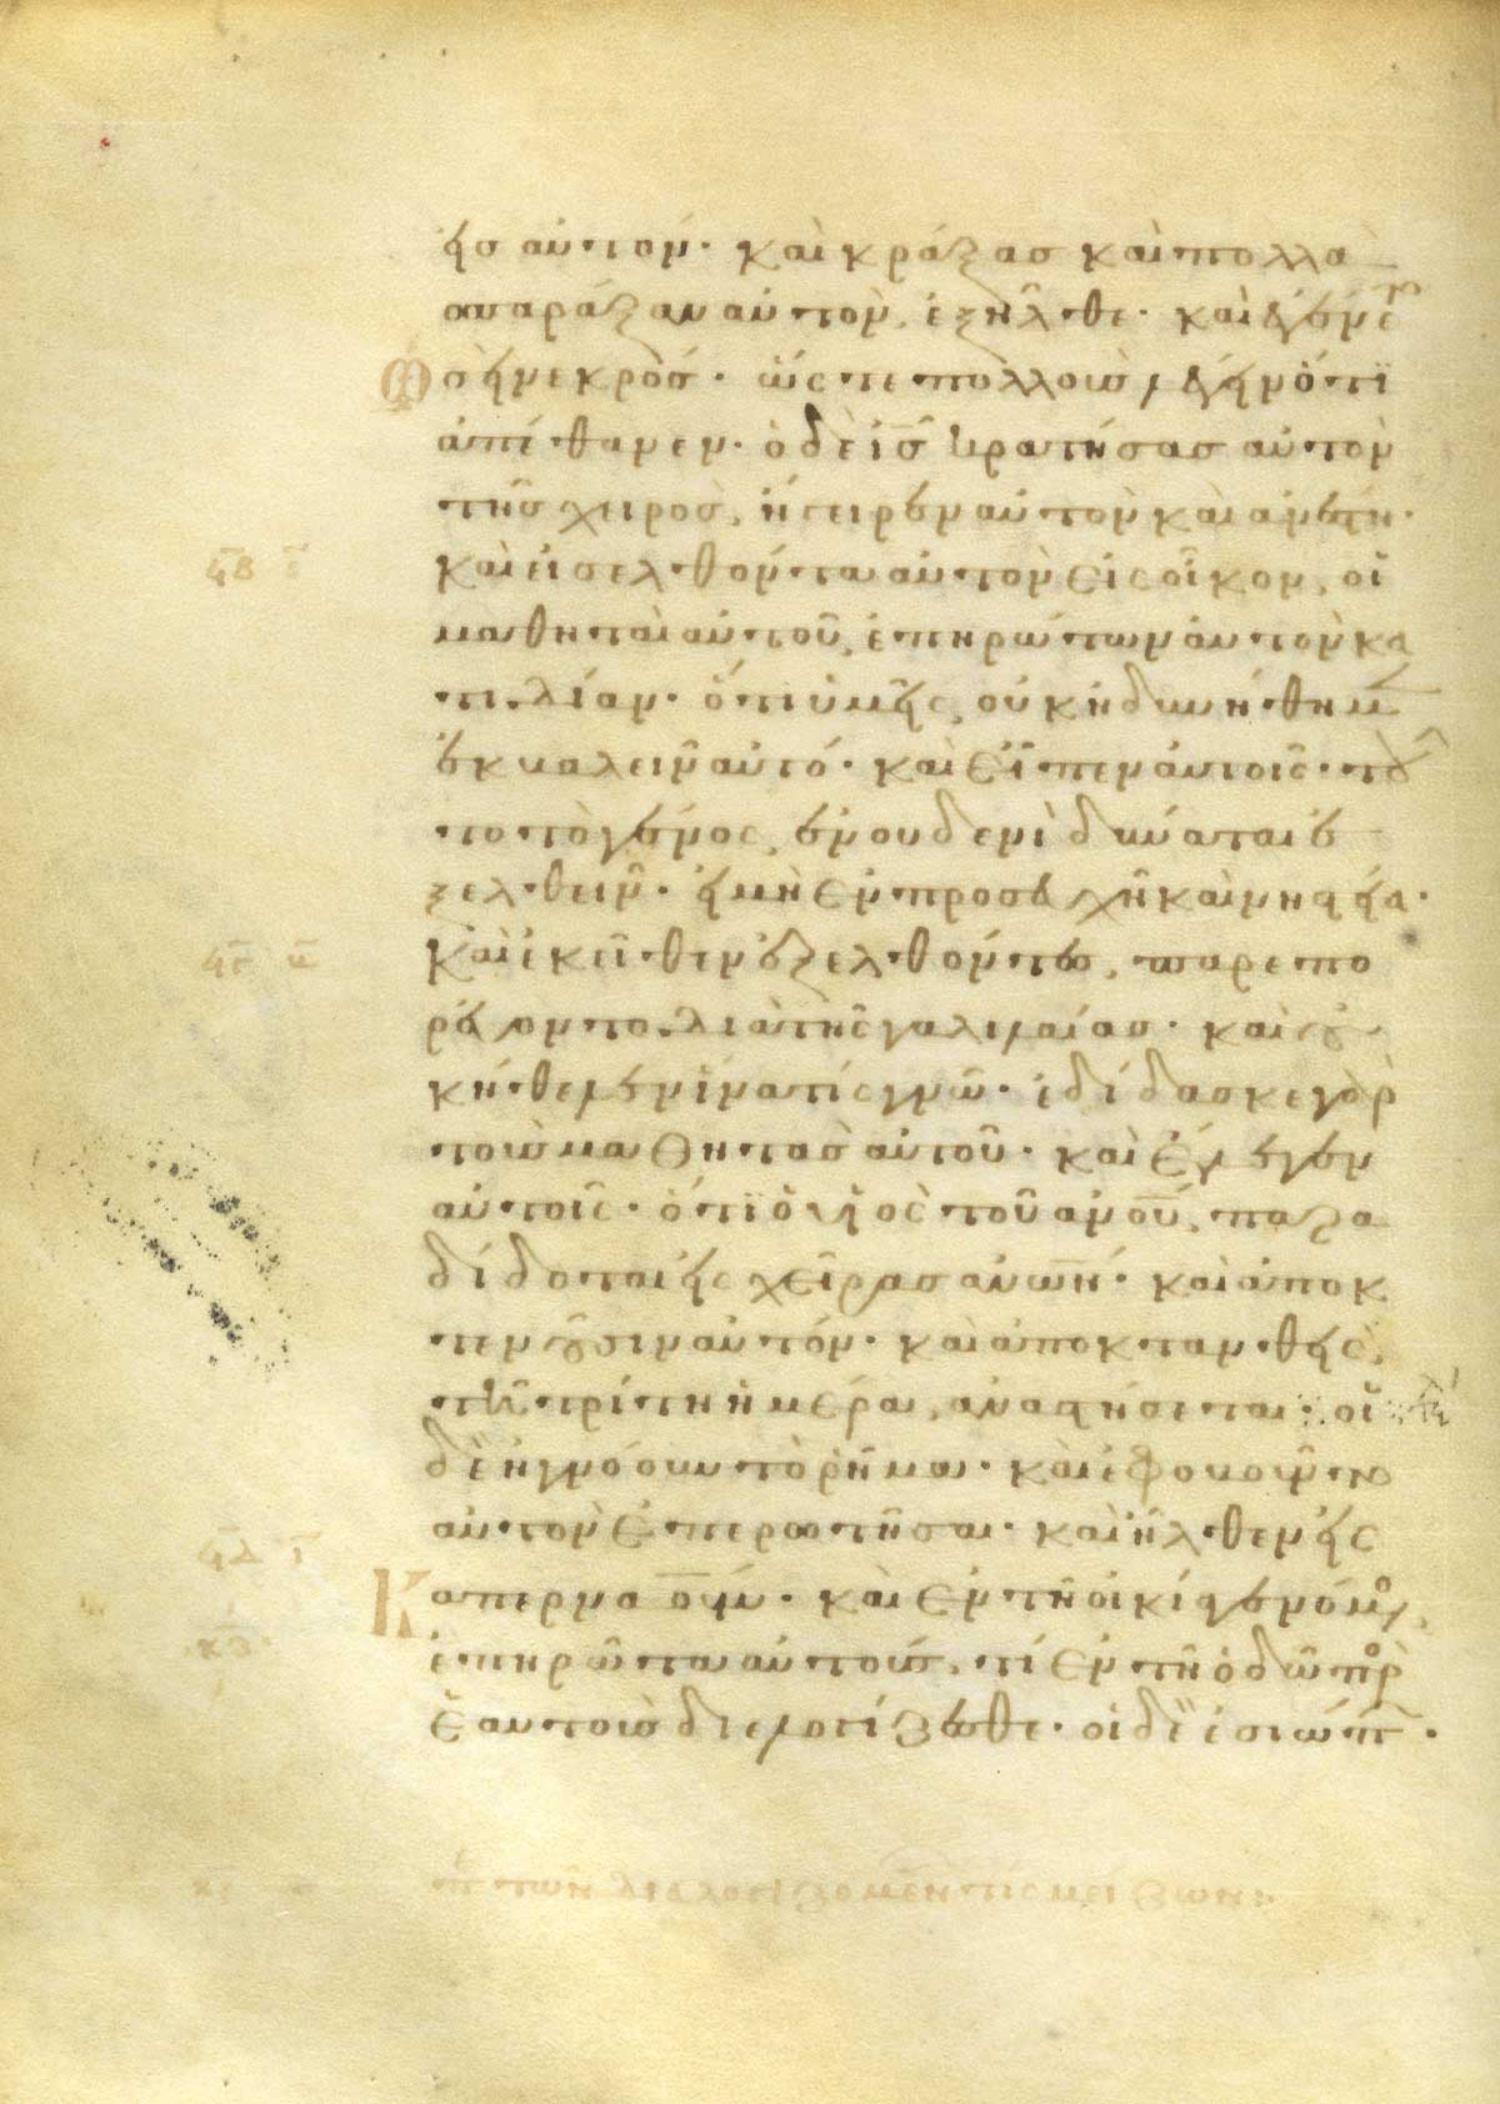 εἰσ αὐτόν· καὶ κράξασ καὶ πολλὰ
σπαράξαν αὐτὸν, ἐξῆλθε· καὶ ἐγένετο
ὡσεὶ νεκρόσ· ὥστε πολλοὺσ λέγειν ὅτι
ἀπέθανεν· ὁ δὲ ι̅ς̅ κρατήσασ αὐτὸν
τῆσ χειρὸσ, ἤγειρεν αὐτὸν καὶ ἀνέστη·
ϟβ ι
καὶ εἰσελθόντα αὐτὸν εἰς οἶκον, οἱ
μαθηταὶ αὐτοῦ, ἐπηρώτων αὐτὸν κα
τιδίαν· ὅτι ὑμεῖς, οὐκ ἠδυνήθημεν
ἐκβαλεῖν αὐτό· καὶ εἶπεν αὐτοῖς· τοῦ
το τὸ γένος, ἐν οὐδενὶ δύναται ἐ
ξελθεῖν· εἰ μὴ ἐν προσευχῆ καὶ νηστεία·
καὶ ἐκεῖθεν ἐξελθόντες, παρεπο
ρεύοντο διὰ τῆς γαλιλαίασ· καὶ οὐ
κ ἤθελεν ἵνα τίς γνῶ· ἐδίδασκε γὰρ
τοὺσ μαθητὰσ αὐτοῦ· καὶ ἔλεγεν
αὐτοῖς· ὅτι ὁ υἱὸς τοῦ α̅ν̅ο̅υ̅, παρα
δίδοται εἰς χεῖρασ α̅ν̅ω̅ν̅· καὶ ἀποκ
τενοῦσιν αὐτόν· καὶ ἀποκτανθεὶς,
τῆ τρίτη ἡμέρα, ἀναστήσεται· οἱ
δὲ ἠγνόουν τὸ ρῆμα· καὶ ἐφοβοῦντο
αὐτὸν ἐπερωτῆσαι· καὶ ἦλθεν εἰς
ϟδ ι
Καπερναούμ· καὶ ἐν τῆ οἰκία γενόμενος,
ἐπηρώτα αὐτούσ, τί ἐν τῆ ὁδῶ πρὸς
ἑαυτοὺσ διελογίζεσθε· οἱ δὲ ἐσιώπων·